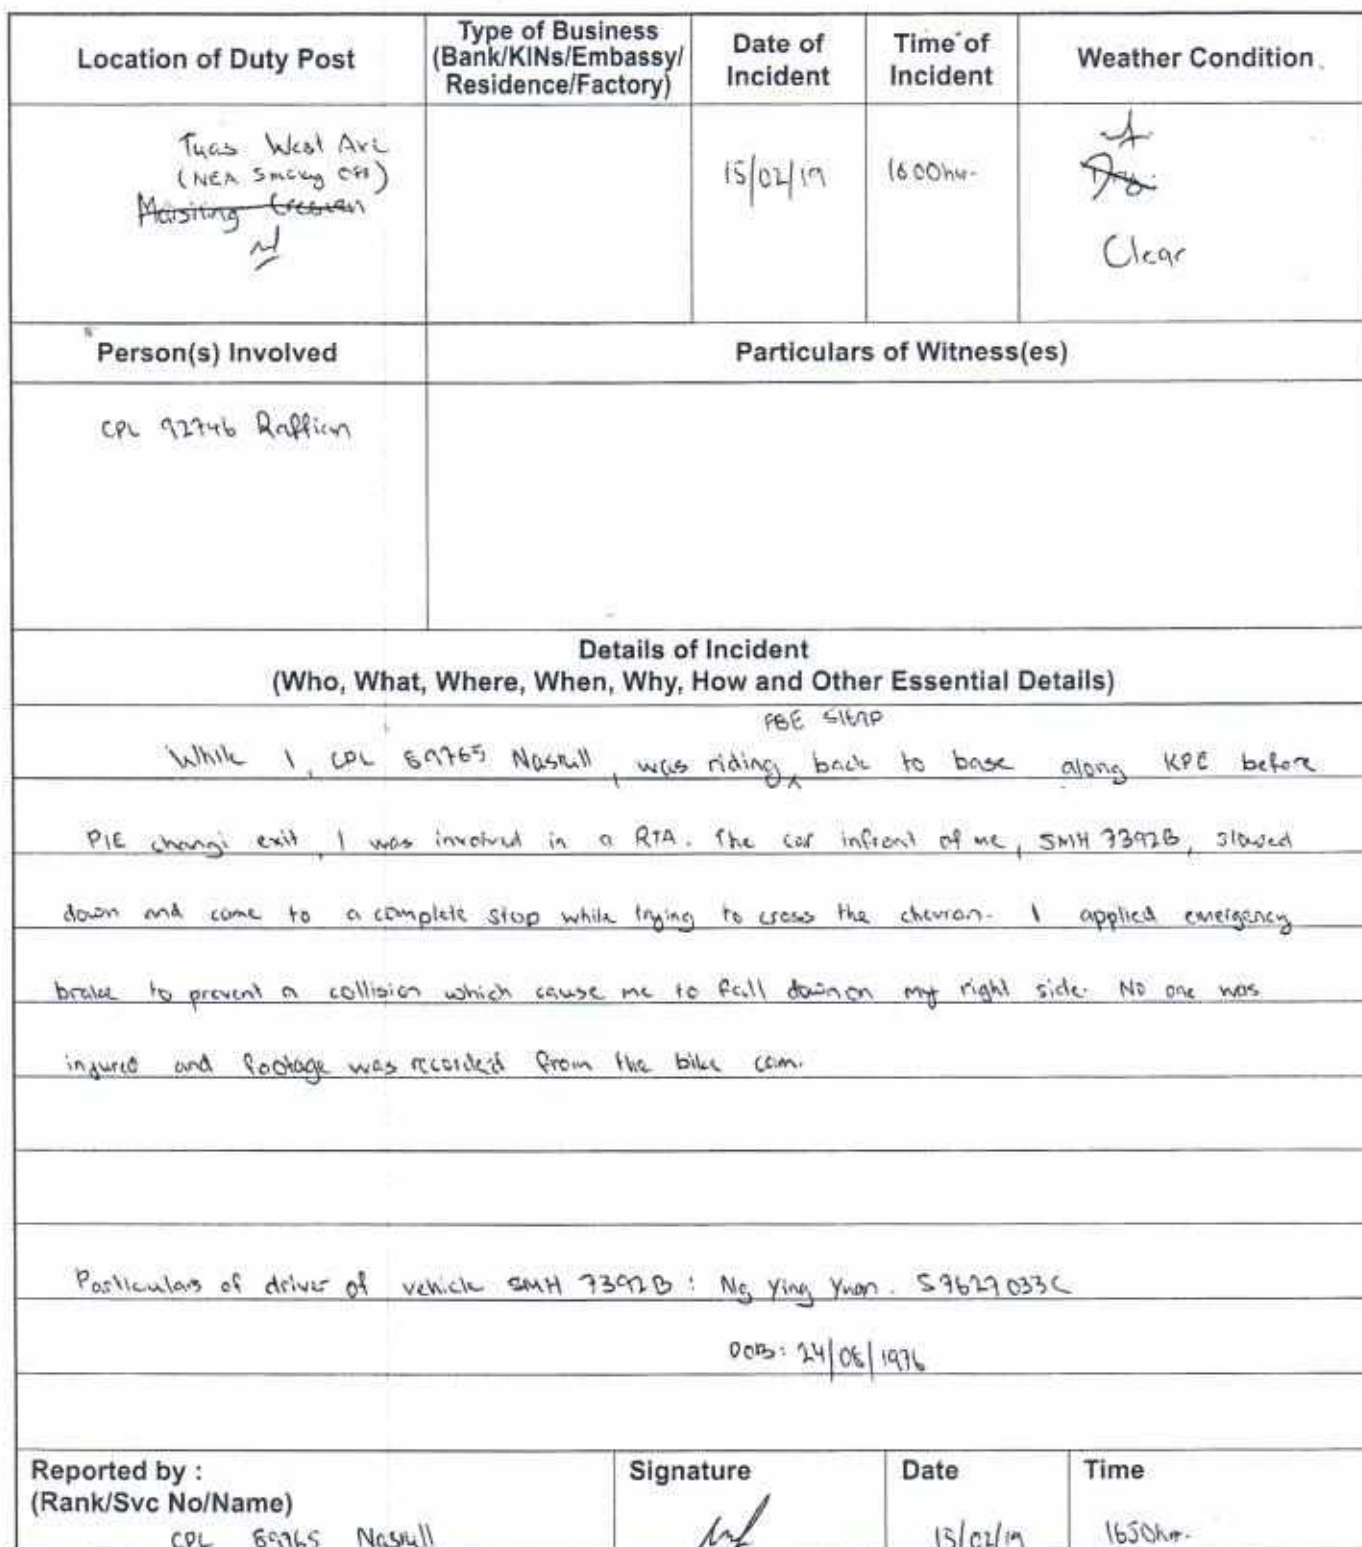 Location of Duty Post
Type of Business
(Bank/KINs/Embassy/
Residence/Factory)
Date of
Incident
Time of
Incident
Weather Condition
Tuas West Ave
(NEA Smoking OPS)
Marsiling Crescen
15/02/19
1600hr
Dry
Clear
Person(s) Involved
Particulars of Witness(es)
CPL 92746 Raffian
Details of Incident
(Who, What, Where, When, Why, How and Other Essential Details)
FBE
While I, CPL 89765 Nasrull, was riding back to base along KPE before
PIE changi exit, I was involved in a RTA. The car infront of me, SMH 7392B, slowed
down and came to a complete stop while trying to cross the chevron. I applied emergency
brake to prevent a collision which cause me to fall down on my right side. No one was
injured and footage was recorded from the bike cam.
Particulars of driver of vehicle SMH 7392B: Ng Ying Yuan. S7627033C
DOB: 24/08/1976
Reported by :
(Rank/Svc No/Name)
Signature
Date
Time
CPL 89765 Nasrull
15/02/19
1650hr